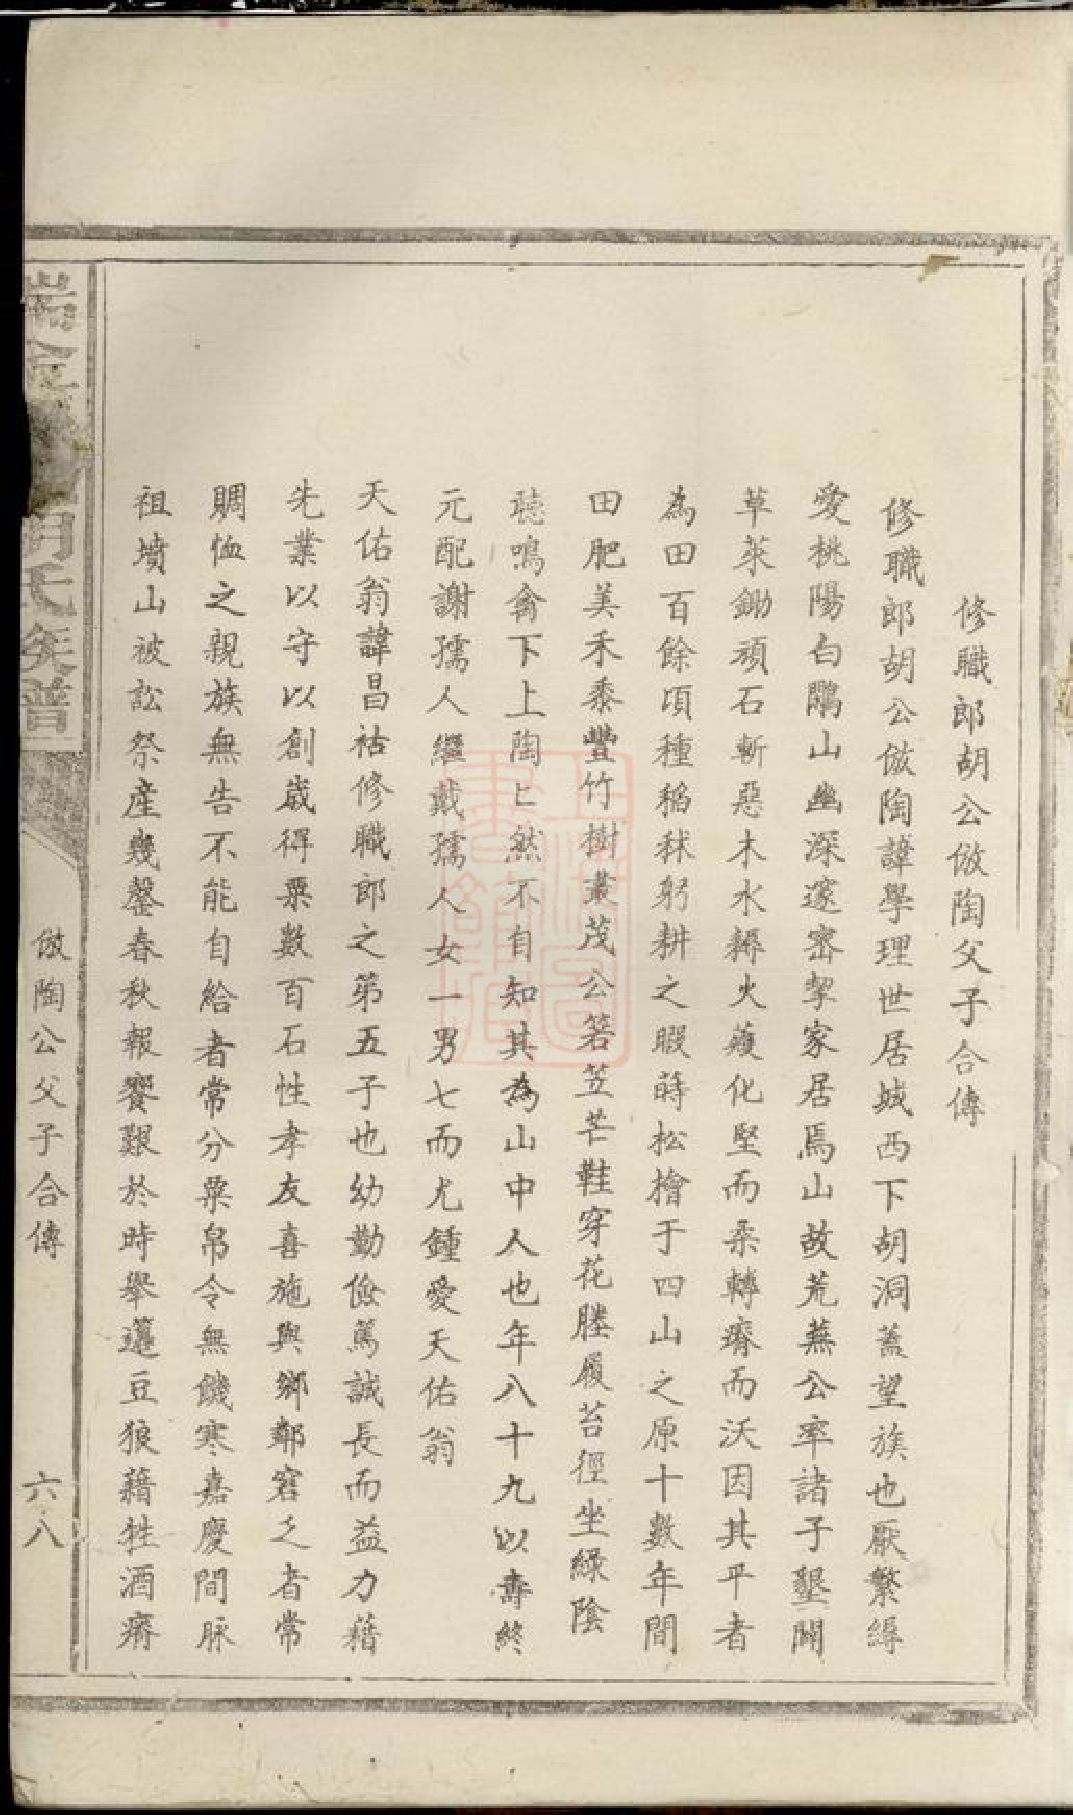 修職郎胡公倣陶父子合傳
修職郎胡公倣陶諱學理世居城西下胡洞蓋望族也厭繁縟
愛桃陽白鷴山幽深邃密挈家居焉山故荒蕪公率諸子墾闢
草萊鋤頑石斬惡木水耨火薙化堅而柔轉瘠而沃因其平者
為田百餘頃種稻秫躬耕之暇蒔松檜于四山之原十數年間
田肥美禾黍豐竹樹叢茂公箬笠芒鞋穿花塍履苔徑坐綠陰
聽鳴禽下上陶匕然不自知其為山中人也年八十九以壽終
元配謝孺人繼戴孺人女一男七而尤鍾愛天佑翁
天佑翁諱昌祜修職郎之第五子也幼勤儉篤誠長而益力藉
先業以守以創歲得粟數百石性孝友喜施與鄉鄰窘乏者常
賙恤之親族無告不能自給者常分粟帛令無饑寒嘉慶間脉
祖墳山被訟祭產幾罄春秋報饗艱於時舉籩豆狼藉牲酒瘠
瑞金 胡氏族譜
倣陶公父子合傳
六八
上海圖書館藏